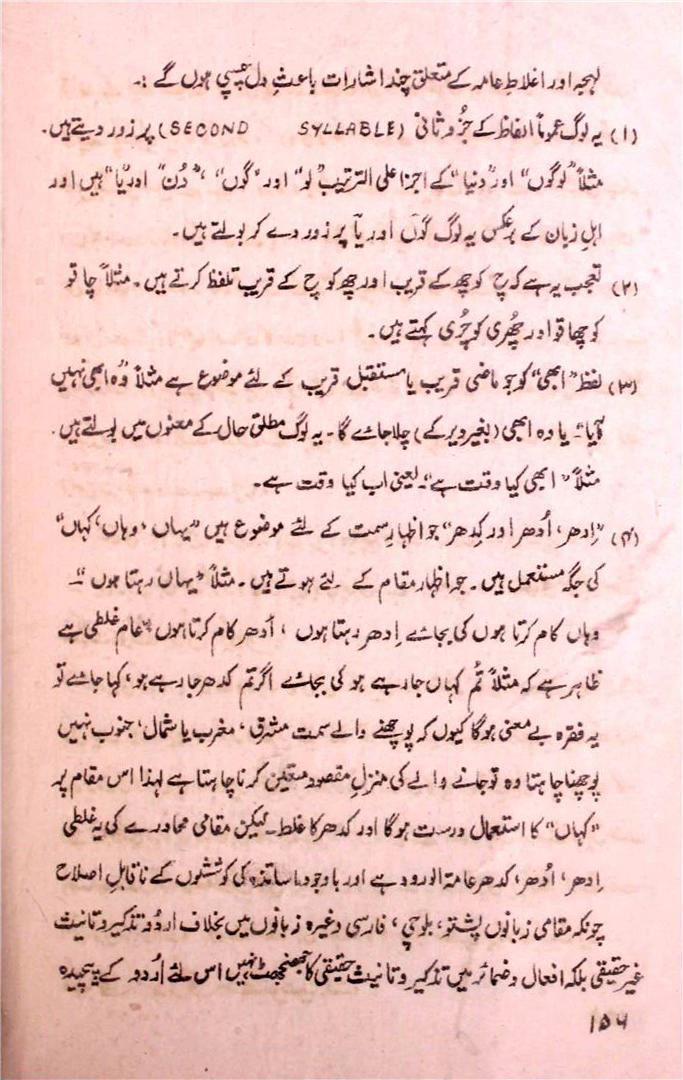 لہجہ اور اغلاطِ عامہ کے متعلق چند اشارات باعثِ دل چسپی ہوں گے :۔
(۱) یہ لوگ عموماً الفاظ کے جُزوِ ثانی (SECOND SYLLABLE) پر زور دیتے ہیں۔
مثلاً "لوگوں" اور "دنیا" کے اجزا علی الترتیب "لو" اور "گوں"، "دُن" اور "یا" ہیں اور
اہلِ زبان کے برعکس یہ لوگ گوں اور یا پر زور دے کر بولتے ہیں۔
(۲) تعجب یہ ہے کہ چ کو چھ کے قریب اور چھ کو چ کے قریب تلفظ کرتے ہیں۔ مثلاً چاقو
کو چھاقو اور چُھری کو چُری کہتے ہیں۔
(۳) لفظ "ابھی" کو جو ماضی قریب یا مستقبل قریب کے لئے موضوع ہے مثلاً "وہ ابھی نہیں
آیا"۔ یا وہ ابھی (بغیر دیر کے) چلا جائے گا۔ یہ لوگ مطلق حال کے معنوں میں بولتے ہیں۔
مثلاً "ابھی کیا وقت ہے"۔ یعنی اب کیا وقت ہے۔
(۴) "اِدھر، اُدھر اور کِدھر" جو اظہارِ سمت کے لئے موضوع ہیں "یہاں، وہاں، کہاں"
کی جگہ مستعمل ہیں۔ جو اظہار مقام کے لئے ہوتے ہیں۔ مثلاً "یہاں رہتا ہوں"۔
وہاں کام کرتا ہوں کی بجائے اِدھر رہتا ہوں، اُدھر کام کرتا ہوں" عام غلطی ہے
ظاہر ہے کہ مثلاً تُم کہاں جا رہے ہو کی بجائے اگر تم کدھر جا رہے ہو، کہا جائے تو
یہ فقرہ بے معنی ہوگا کیوں کہ پوچھنے والے سمت مشرق، مغرب یا شمال، جنوب نہیں
پوچھنا چاہتا وہ تو جانے والے کی منزلِ مقصود متعین کرنا چاہتا ہے لہذا اس مقام پر
"کہاں" کا استعمال درست ہوگا اور کدھر کا غلط۔ لیکن مقامی محاورے کی یہ غلطی
اِدھر، اُدھر، کدھر عامۃ الورود ہے اور باوجود اساتذہ کی کوششوں کے ناقابلِ اصلاح
چونکہ مقامی زبانوں پشتو، بلوچی، فارسی وغیرہ زبانوں میں بخلاف اردو تذکیر و تانیث
غیر حقیقی بلکہ افعال و ضمائر میں تذکیر و تانیث حقیقی کا جھنجھٹ نہیں اس لئے اُردو کے پیچیدہ
۱۵۶